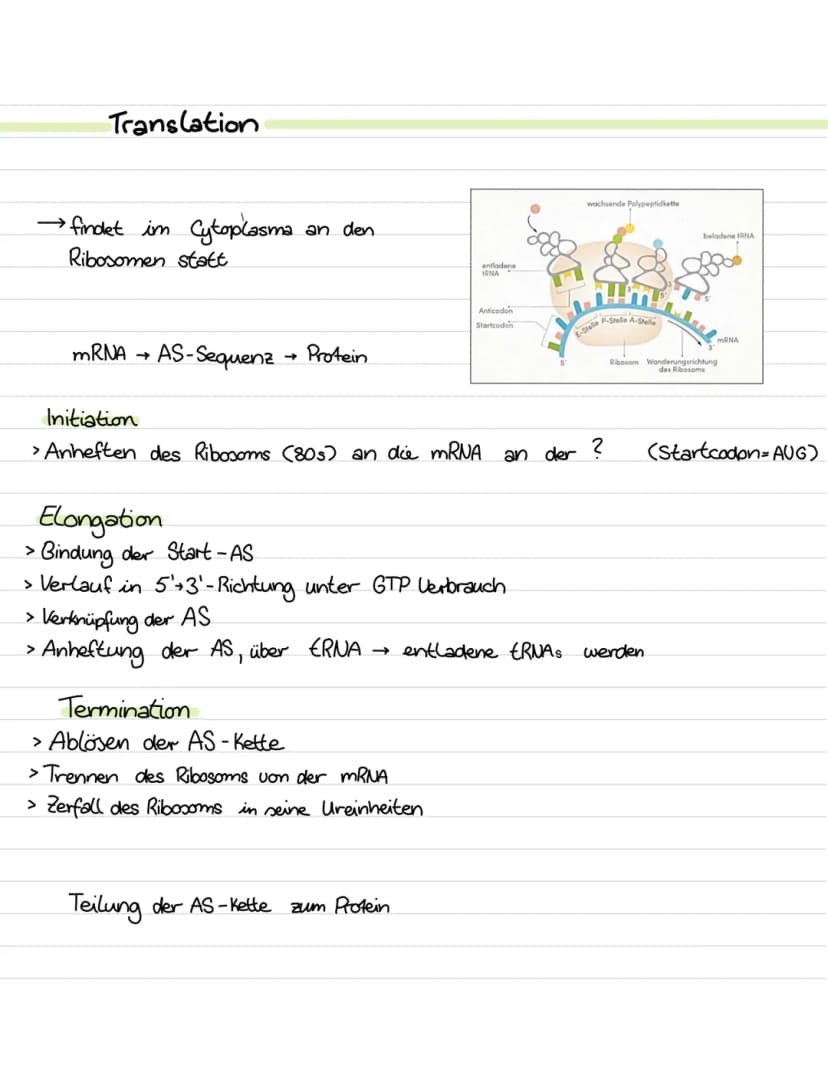 Translation
→ findet im Cytoplasma an den
Ribosomen statt
mRNA → AS-Sequenz → Protein
wachsende Polypeptidkette
beladene tRNA
entladene
tRNA
Anticodon
Startcodon
E-Stelle P-Stelle A-Stelle
mRNA
5'
3'
Ribosom
Wanderungsrichtung
des Ribosoms
Initiation
> Anheften des Ribosoms (80s) an die mRNA an der ? (Startcodon=AUG)
Elongation
> Bindung der Start-AS
> Verlauf in 5'→3'-Richtung unter GTP Verbrauch
> Verknüpfung der AS
> Anheftung der AS, über tRNA → entladene tRNAs werden
Termination
> Ablösen der AS-Kette
> Trennen des Ribosoms von der mRNA
> Zerfall des Ribosoms in seine Ureinheiten
Teilung der AS-Kette zum Protein